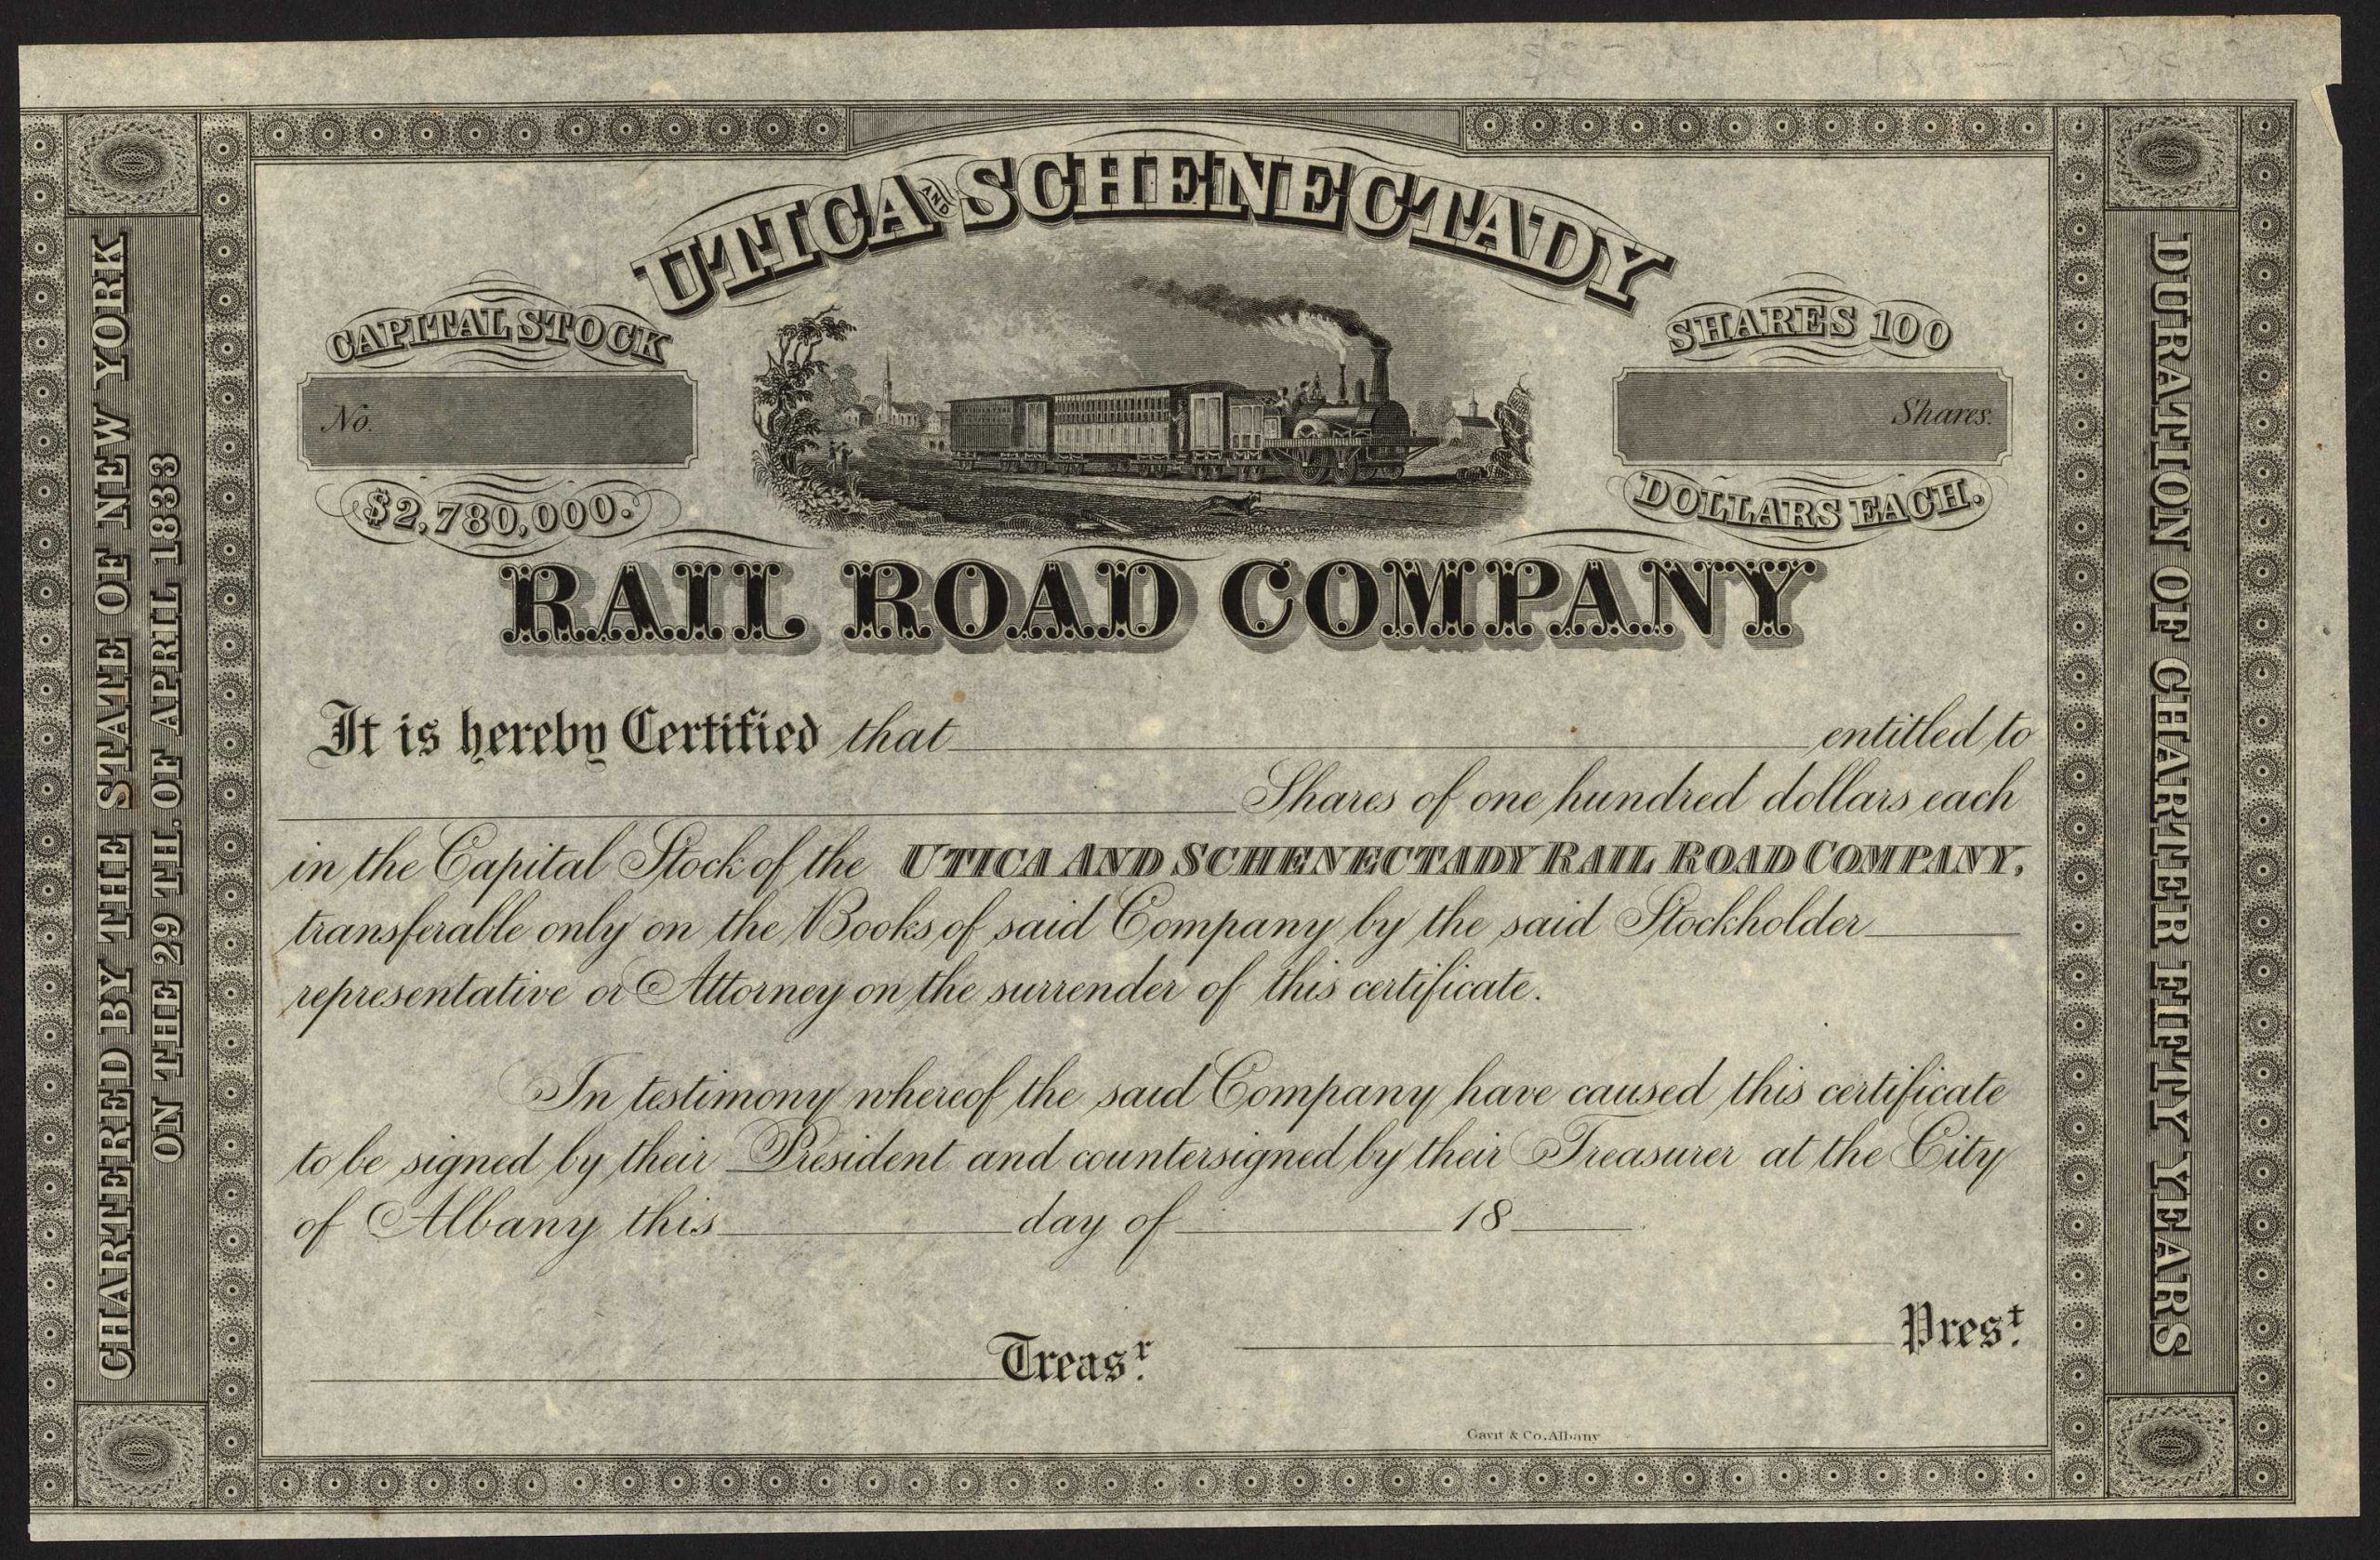 UTICA AND SCHENECTADY
CAPITAL STOCK
No.
$2,780,000.
SHARES 100
Shares.
DOLLARS EACH.
RAIL ROAD COMPANY
It is hereby Certified that entitled to
Shares of one hundred dollars each
in the Capital Stock of the UTICA AND SCHENECTADY RAIL ROAD COMPANY,
transferable only on the Books of said Company by the said Stockholder
representative or Attorney on the surrender of this certificate.
In testimony whereof the said Company have caused this certificate
to be signed by their President and countersigned by their Treasurer at the City
of Albany this day of 18
Treasr.
Prest.
Gavit & Co. Albany
CHARTERED BY THE STATE OF NEW YORK
ON THE 29 TH. OF APRIL 1833
DURATION OF CHARTER FIFTY YEARS